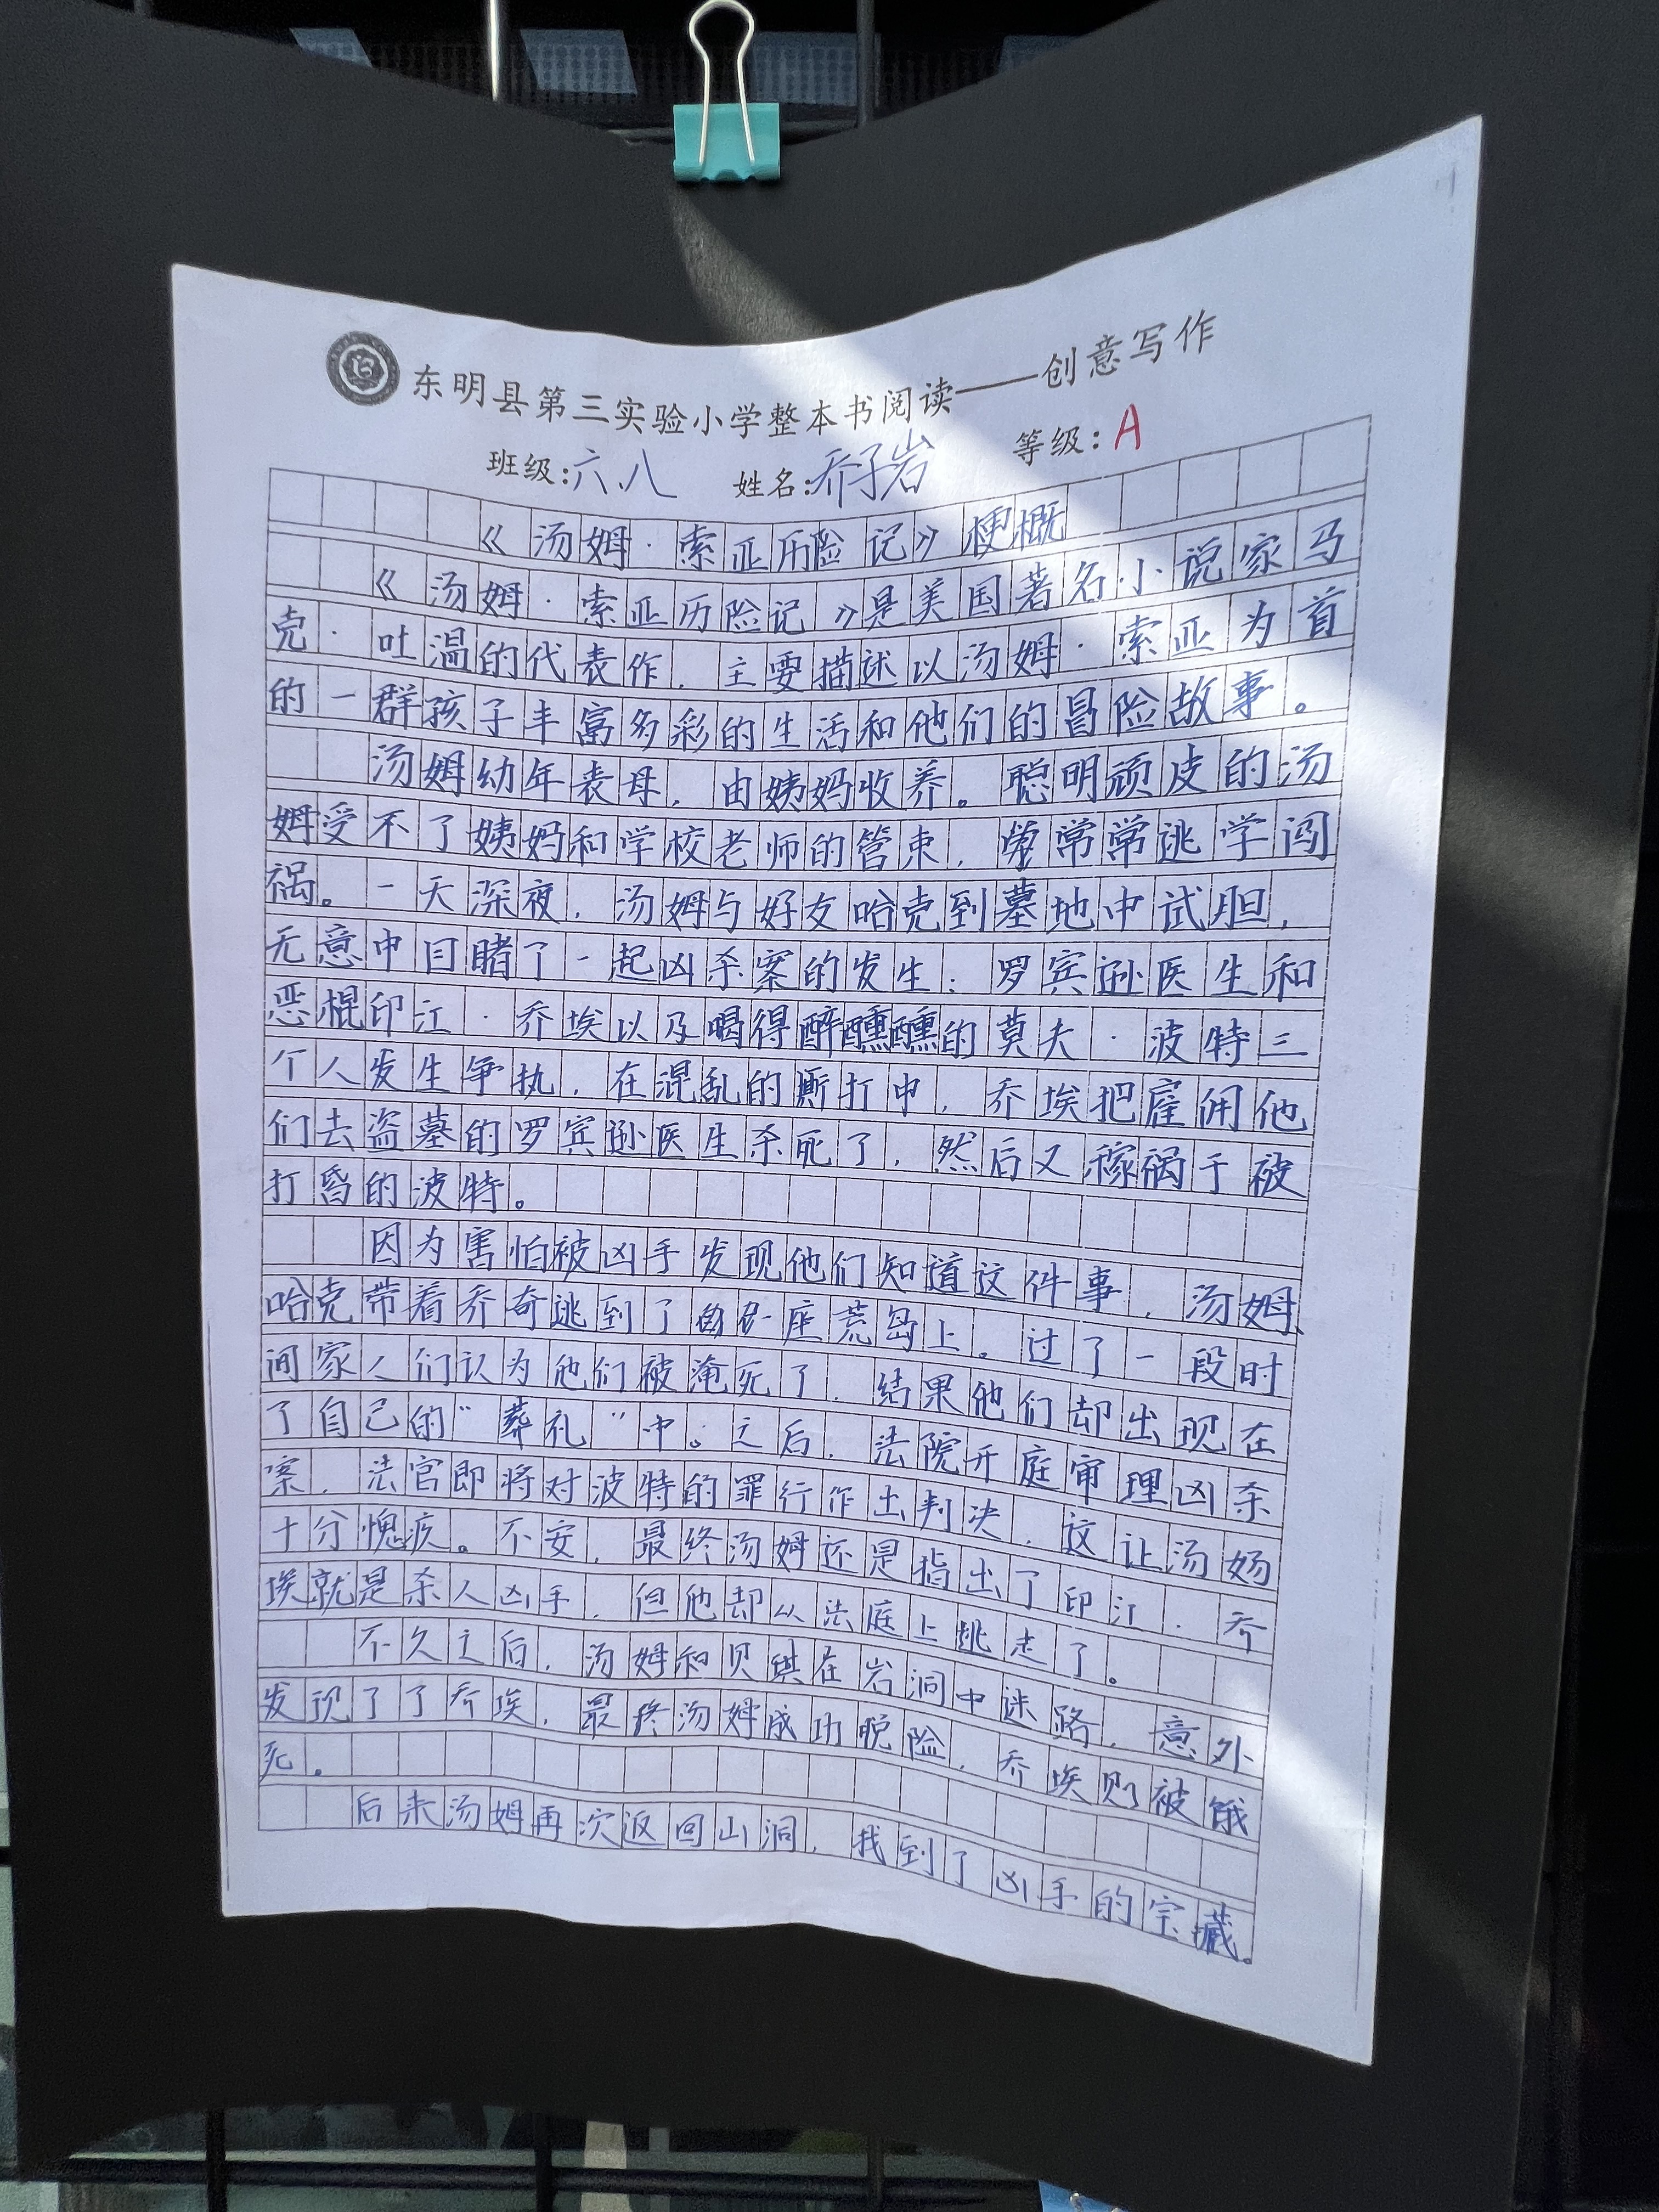 东明县第三实验小学整本书阅读——创意写作
班级:六.八 姓名:乔子岩 等级:A
《汤姆·索亚历险记》梗概
《汤姆·索亚历险记》是美国著名小说家马
克·吐温的代表作,主要描述以汤姆·索亚为首
的一群孩子丰富多彩的生活和他们的冒险故事。
汤姆幼年丧母,由姨妈收养。聪明顽皮的汤
姆受不了姨妈和学校老师的管束,常常逃学闯
祸。一天深夜,汤姆与好友哈克到墓地中试胆,
无意中目睹了一起凶杀案的发生:罗宾逊医生和
恶棍印江·乔埃以及喝得醉醺醺的莫夫·波特三
个人发生争执,在混乱的撕打中,乔埃把雇佣他
们去盗墓的罗宾逊医生杀死了,然后又稼祸于被
打昏的波特。
因为害怕被凶手发现他们知道这件事,汤姆、
哈克带着乔奇逃到了一座荒岛上。过了一段时
间家人们认为他们被淹死了,结果他们却出现在
了自己的“葬礼”中。之后,法院开庭审理凶杀
案,法官即将对波特的罪行作出判决,这让汤姆
十分愧疚。不安,最终汤姆还是指出了印江·乔
埃就是杀人凶手,但他却从法庭上逃走了。
不久之后,汤姆和贝琪在岩洞中迷路,意外
发现了了乔埃,最终汤姆成功脱险,乔埃则被饿
死。
后来汤姆再次返回山洞,找到了凶手的宝藏。